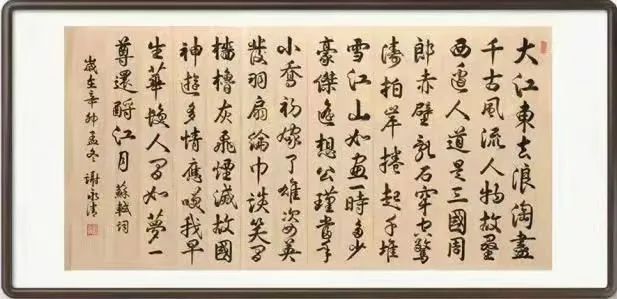 大江東去浪淘盡
千古風流人物故壘
西邊人道是三國周
郎赤壁乱石穿空驚
濤拍岸捲起千堆
雪江山如畫一時多少
豪傑遙想公瑾當年
小喬初嫁了雄姿英
發羽扇綸巾談笑間
檣櫓灰飛煙滅故國
神遊多情應嘆我早
生華髮人間如夢一
尊還酹江月 蘇軾詞
歲在辛卯孟冬 謝永清